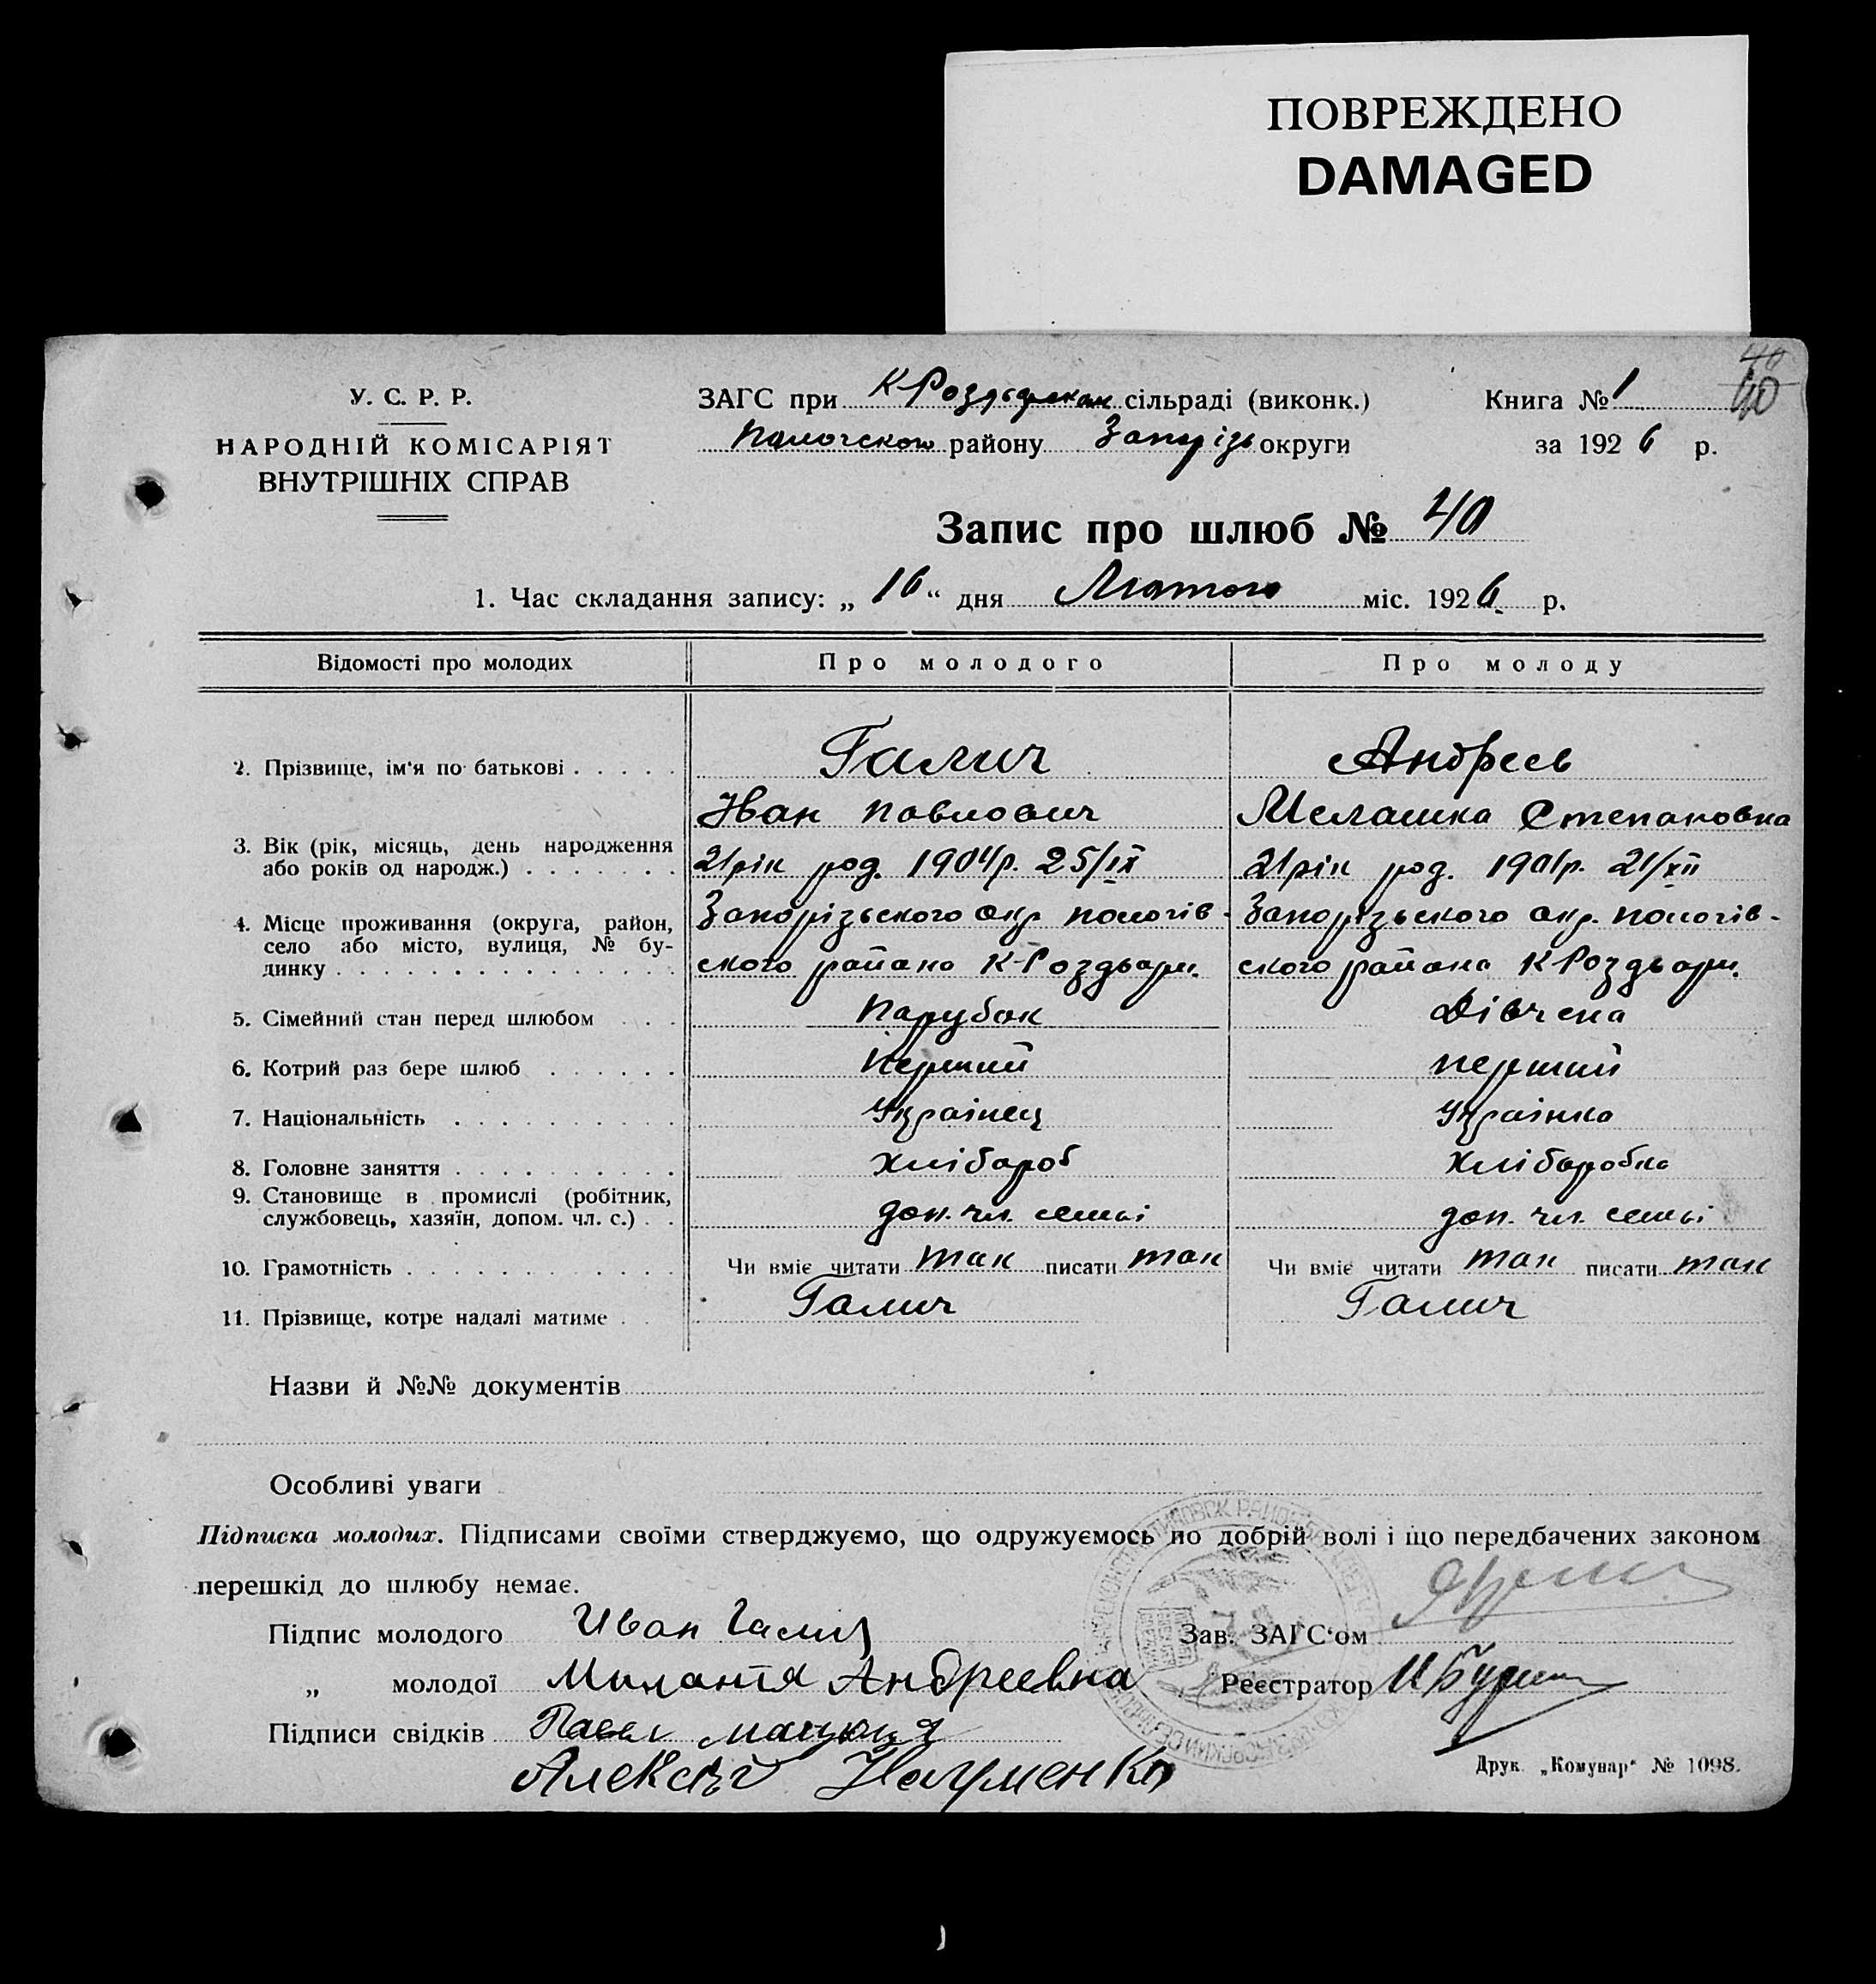 ПОВРЕЖДЕНО
DAMAGED
40
40
У. С. Р. Р.
НАРОДНІЙ КОМІСАРІЯТ
ВНУТРІШНІХ СПРАВ
ЗАГС при сільраді (виконк.)
району Запоріз округи
Книга № 1
за 1926 р.
Запис про шлюб № 40
1. Час складання запису: „ 16 “ дня Лютого міс. 1926 р.
Відомості про молодих Про молодого Про молоду
2. Прізвище, ім'я по батькові Галич Андреєв
Іван Павлович Мелашка Степановна
3. Вік (рік, місяць, день народження
або років од народж.) 21 рік род. 1904 р. 25/IX 21 рік род. р. 21/XII
4. Місце проживання (округа, район,
село або місто, вулиця, № бу-
динку
Запорізького окр пологів- Запорізького окр. пологів-
ского района К-Роздори. ского района К Роздори.
5. Сімейний стан перед шлюбом Парубок Дівчена
6. Котрий раз бере шлюб Перший перший
7. Національність Українец Українка
8. Головне заняття Хлібороб Хліборобка
9. Становище в промислі (робітник,
службовець, хазяїн, допом. чл. с.) доп. чл. семьі доп. чл. семьі
10. Грамотність Чи вміє читати так писати так Чи вміє читати так писати так
11. Прізвище, котре надалі матиме Галич Галич
Назви й №№ документів
Особливі уваги
Підписка молодих. Підписами своїми стверджуємо, що одружуємось по добрій волі і що передбачених законом
перешкід до шлюбу немає.
Підпис молодого Иван Галич
Зав. ЗАГС'ом
„ молодої Андреевна
Реєстратор
Підписи свідків Павел
Алексей Науменко
Друк. „Комунар“ № 1098.